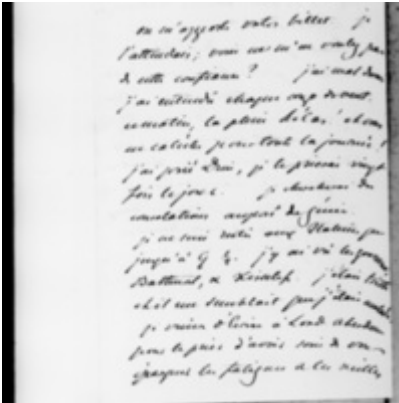 on m'apporte votre billet. je
l'attendais; vous ne m'en voulez pas
de cette confiance ? j'ai mal dormi
j'ai entendu chaque
ce matin, la pluie hélas !
en calèche pour toute la journée !
j'ai prié Dieu, je le prierai vingt
fois le jour. je chercherai des
consolations auprès du génie.
je ne suis restée aux que
jusqu'à 9 h. j'y ai vu
Bathurst, & j'étais triste
et il me semblait que j'étais
je viens d'écrire à Lord Aberdeen
pour le prier d'avoir soin de vous
épargner les fatigues & les veilles